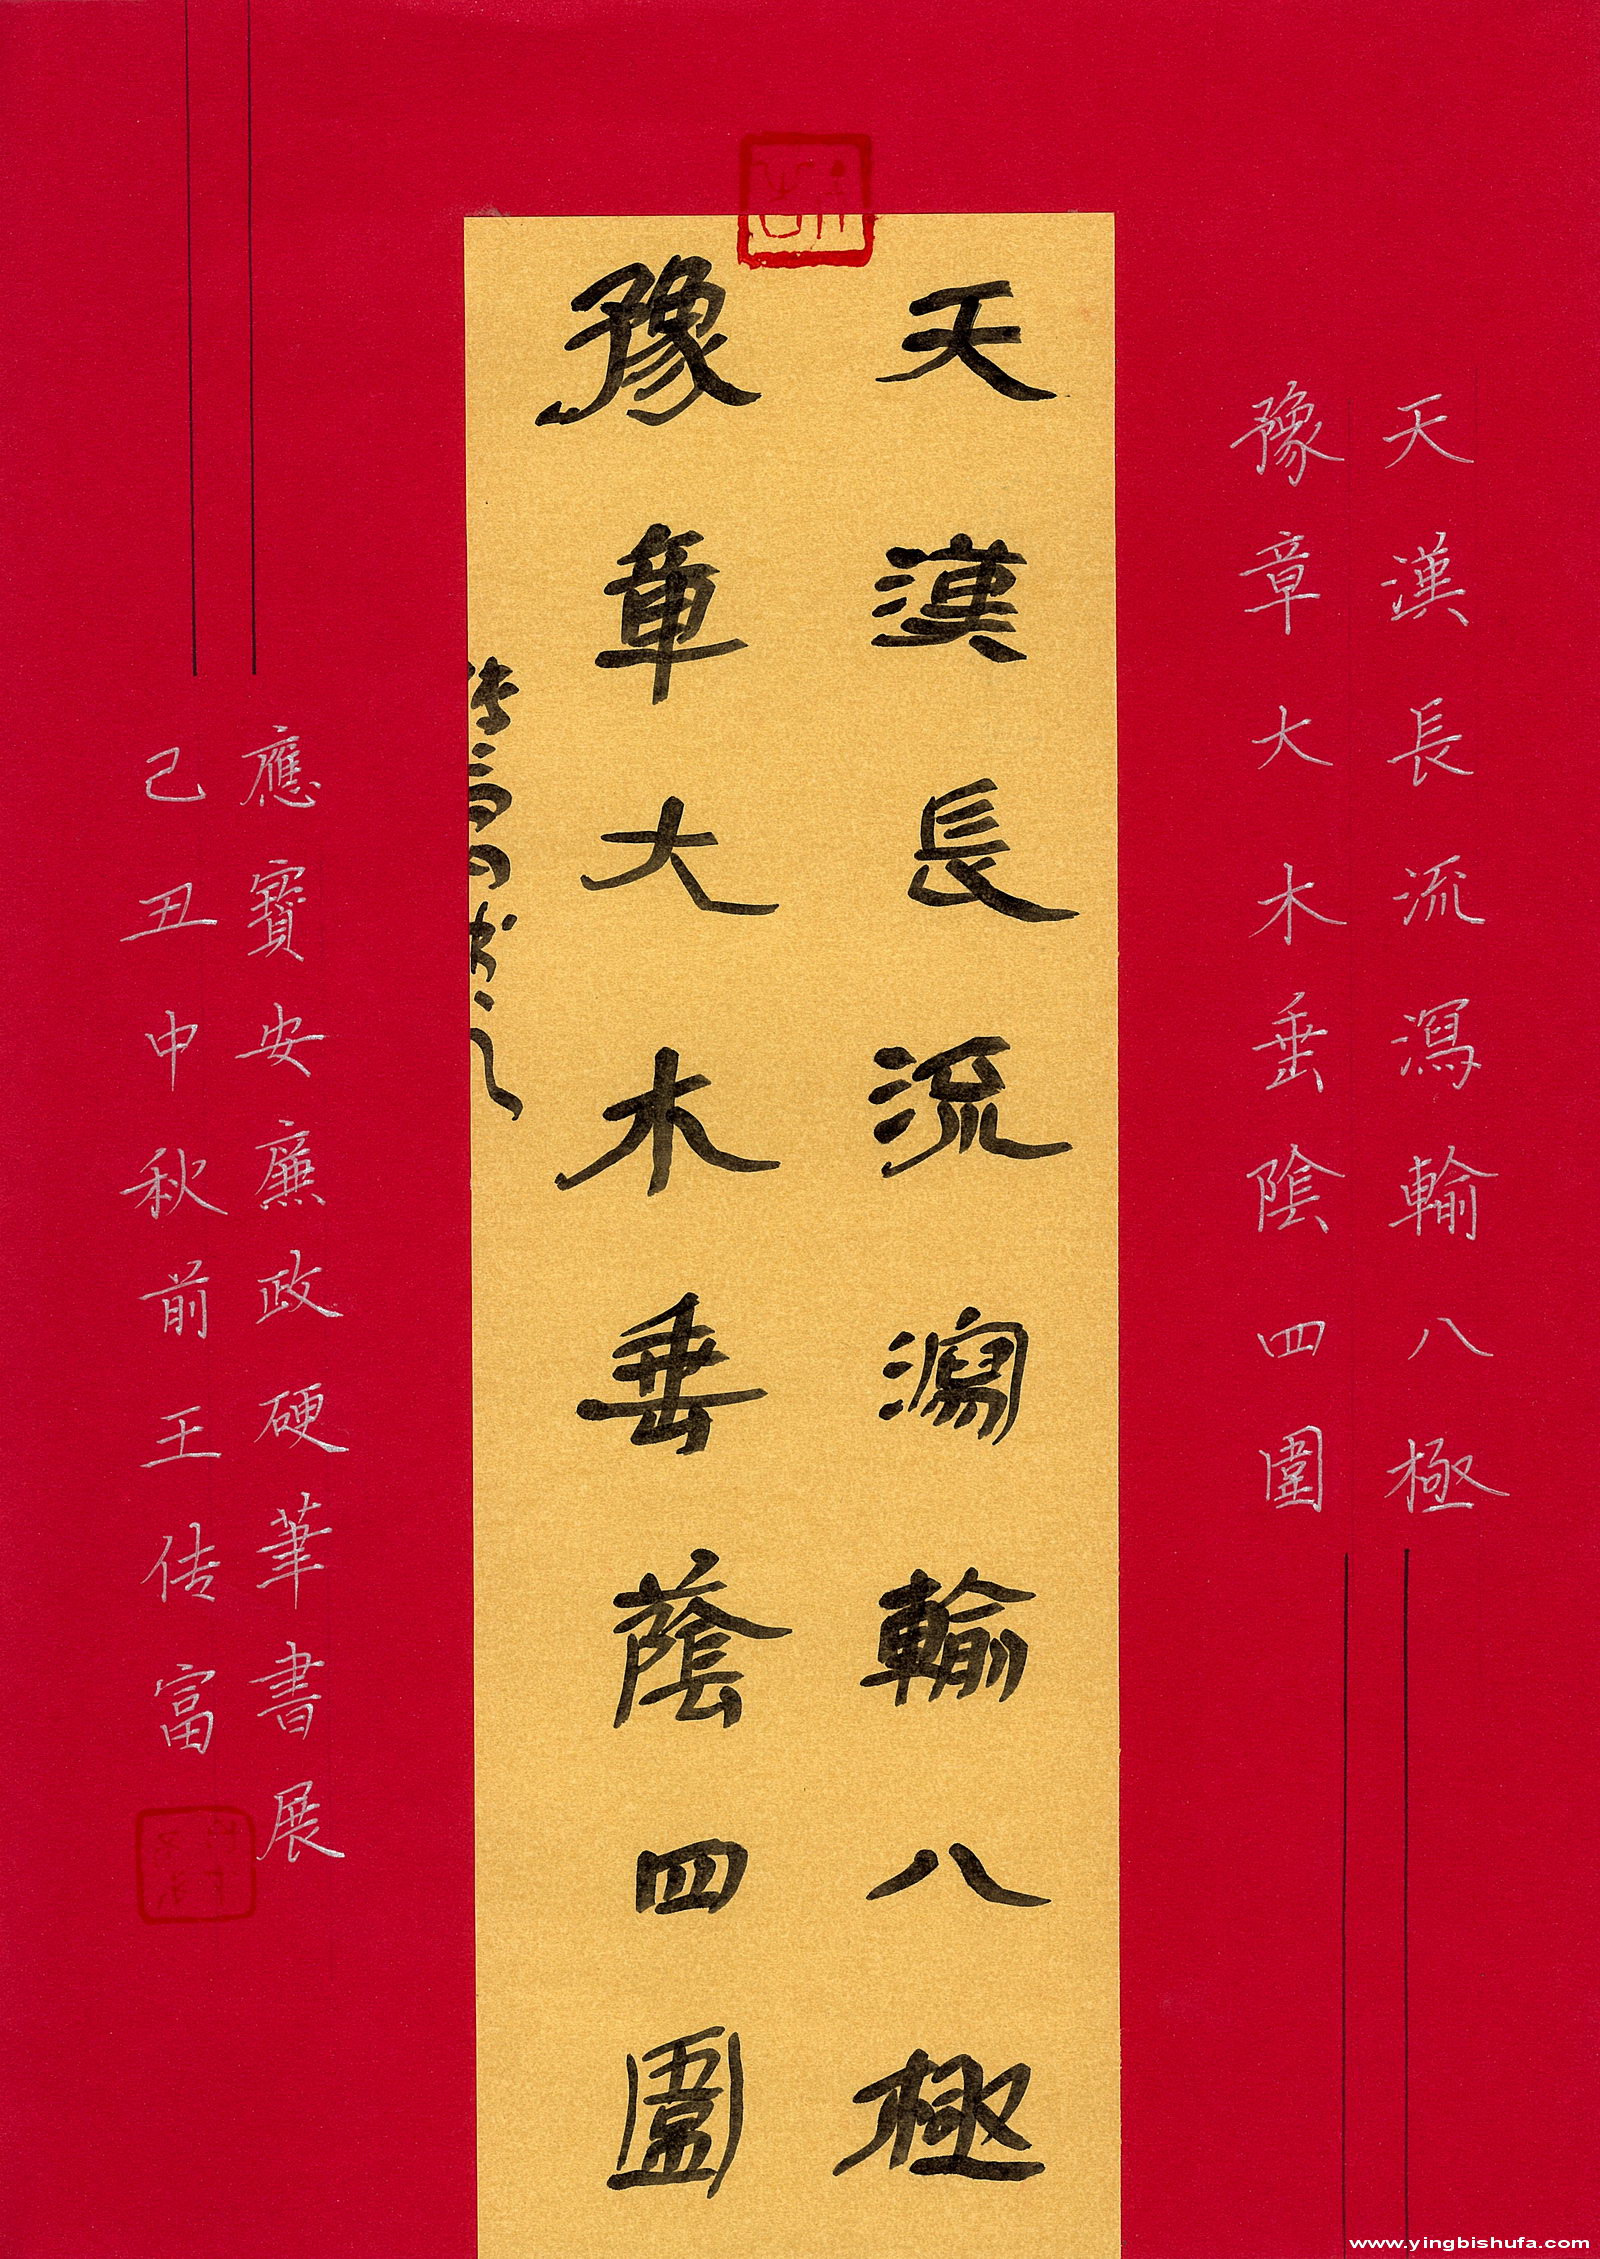 天漢長流瀉輸八極
豫章大木垂陰四圍
天漢長流瀉輸八極
豫章大木垂蔭四圍
應寶安廉政硬筆書展
己丑中秋前王传富
www.yingbishufa.com